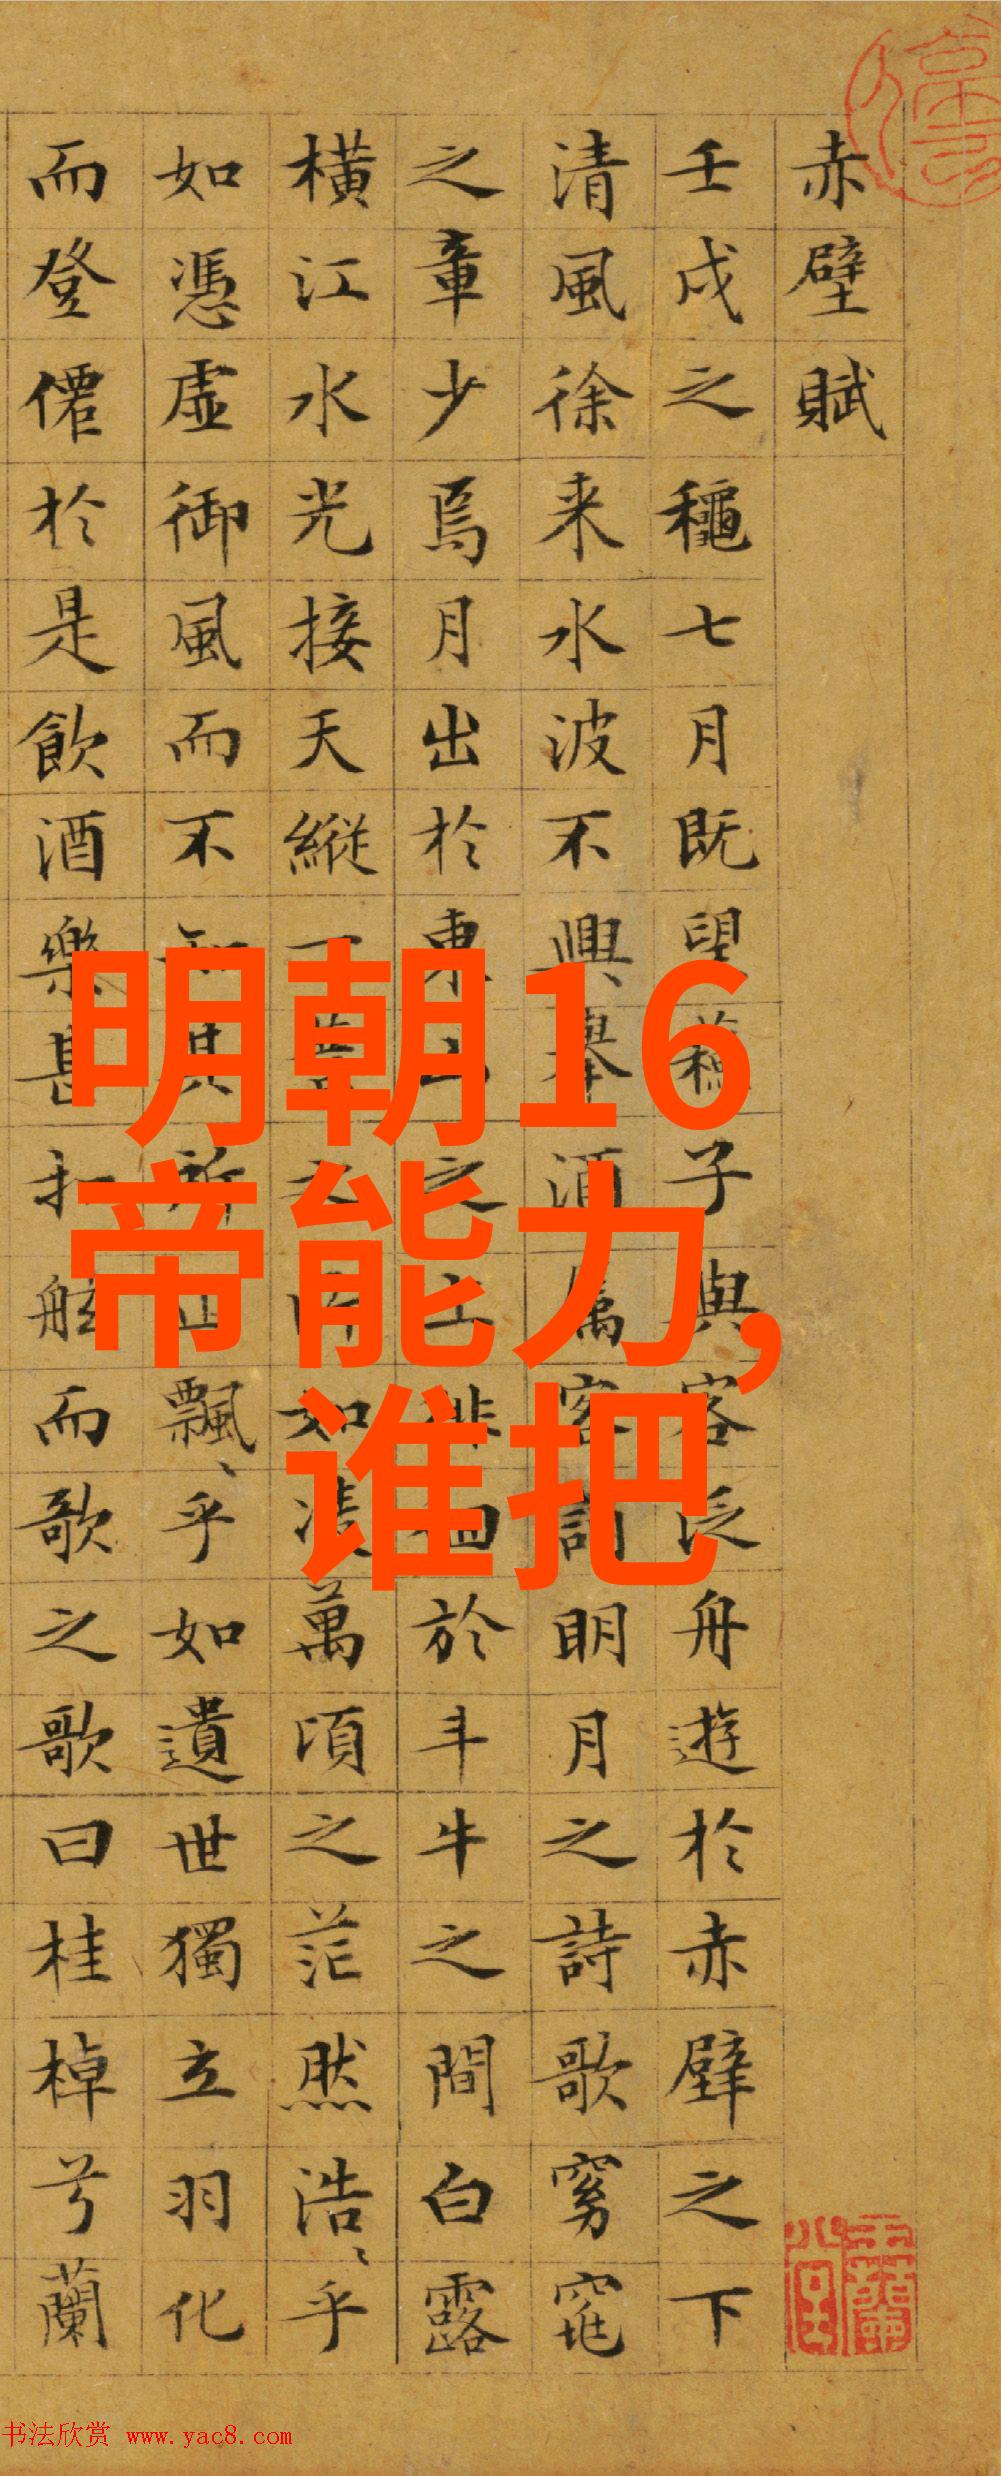 赤壁賦
壬戌之穐七月既望蘓子與客泛舟遊於赤壁之下
清風徐来水波不興舉酒属客誦明月之詩歌窈窕
之章少焉月出於東山之上徘徊於斗牛之間白露
橫江水光接天縱一葦之所如凌萬頃之茫然浩〻乎
如憑虛御風而不知其所止飄〻乎如遺世獨立羽化
而登僊於是飲酒樂甚扣舷而歌之歌曰桂棹兮蘭
明朝16
帝能力,
谁把
书法欣赏 www.yac8.com